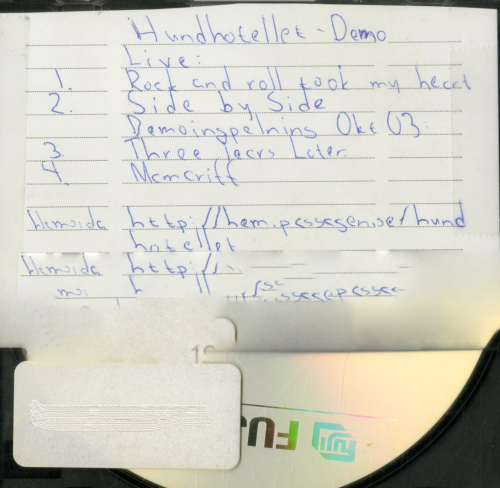 Hundhotellet - Demo
Live:
1. Rock and roll took my heart
2. Side by Side
Demoinspelning Okt 03
3. Three Years Later
4.
Hemsida http://hem.passagen.se/hund
hotellet
Hemsida http://
FUJ